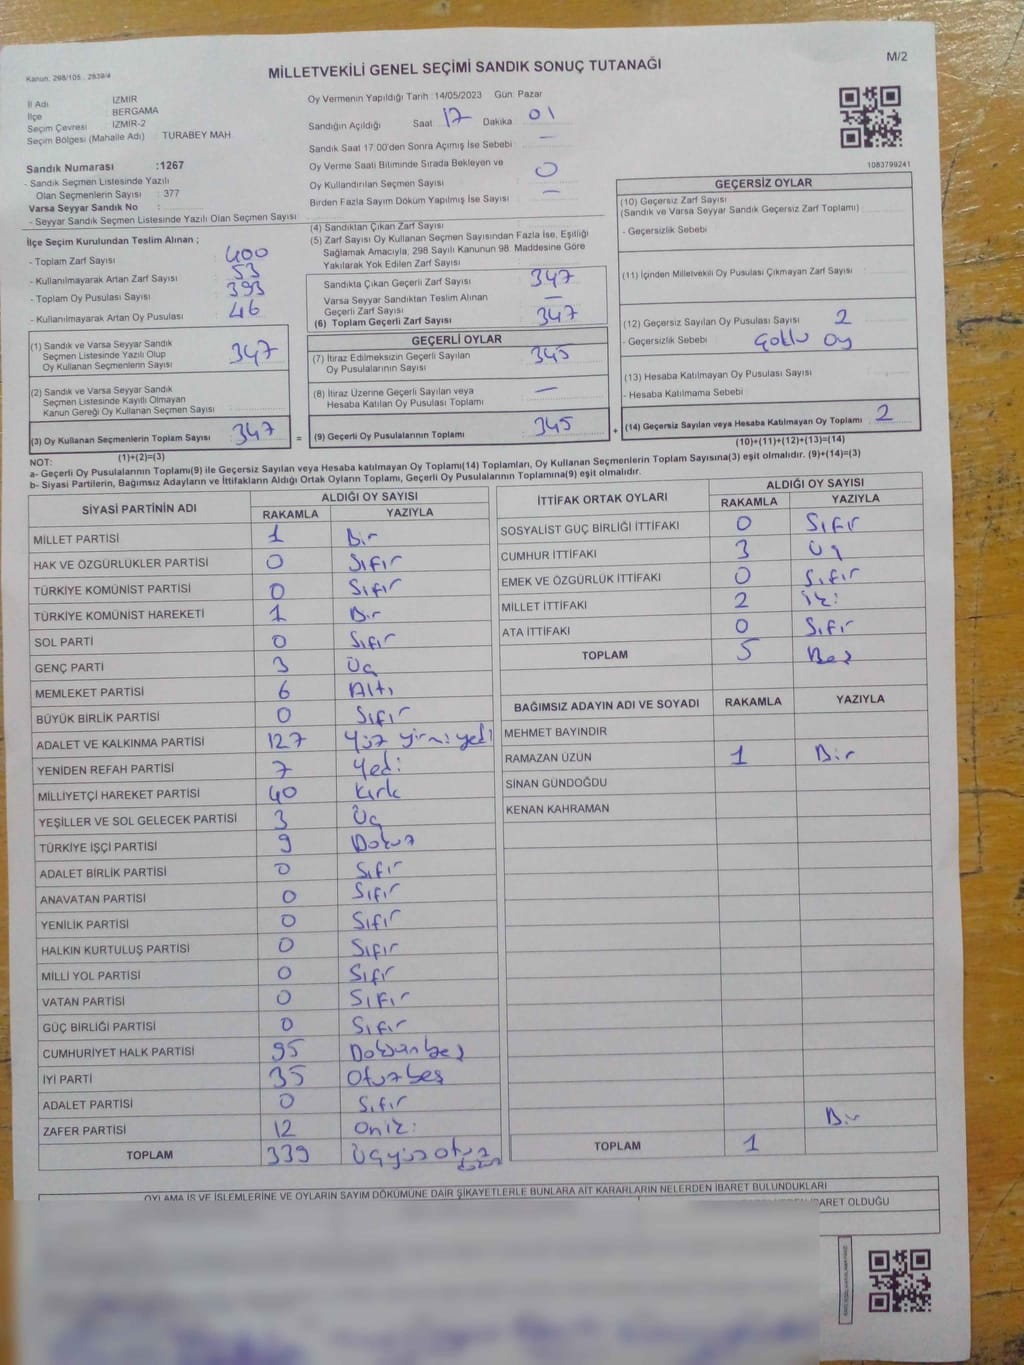 Kanun: 298/105 . 2839/4
M/2
MİLLETVEKİLİ GENEL SEÇİMİ SANDIK SONUÇ TUTANAĞI
İl Adı : İZMİR
İlçe : BERGAMA
Seçim Çevresi : İZMİR-2
Seçim Bölgesi (Mahalle Adı) : TURABEY MAH.
Oy Vermenin Yapıldığı Tarih :14/05/2023 Gün: Pazar
Sandığın Açıldığı Saat 17 Dakika 01
Sandık Saat 17.00'den Sonra Açımış İse Sebebi : —
Oy Verme Saati Bitiminde Sırada Bekleyen ve
Oy Kullandırılan Seçmen Sayısı : 0
Birden Fazla Sayım Döküm Yapılmış İse Sayısı : —
1083799241
Sandık Numarası :1267
- Sandık Seçmen Listesinde Yazılı
Olan Seçmenlerin Sayısı : 377
Varsa Seyyar Sandık No :
- Seyyar Sandık Seçmen Listesinde Yazılı Olan Seçmen Sayısı :
İlçe Seçim Kurulundan Teslim Alınan ;
- Toplam Zarf Sayısı : 400
- Kullanılmayarak Artan Zarf Sayısı : 53
- Toplam Oy Pusulası Sayısı : 393
- Kullanılmayarak Artan Oy Pusulası : 46
(1) Sandık ve Varsa Seyyar Sandık
Seçmen Listesinde Yazılı Olup
Oy Kullanan Seçmenlerin Sayısı : 347
(2) Sandık ve Varsa Seyyar Sandık
Seçmen Listesinde Kayıtlı Olmayan
Kanun Gereği Oy Kullanan Seçmen Sayısı :
(3) Oy Kullanan Seçmenlerin Toplam Sayısı : 347
(1)+(2)=(3)
(4) Sandıktan Çıkan Zarf Sayısı :
(5) Zarf Sayısı Oy Kullanan Seçmen Sayısından Fazla İse, Eşitliği
Sağlamak Amacıyla, 298 Sayılı Kanunun 98. Maddesine Göre
Yakılarak Yok Edilen Zarf Sayısı :
Sandıkta Çıkan Geçerli Zarf Sayısı : 347
Varsa Seyyar Sandıktan Teslim Alınan
Geçerli Zarf Sayısı : —
(6) Toplam Geçerli Zarf Sayısı : 347
GEÇERLİ OYLAR
(7) İtiraz Edilmeksizin Geçerli Sayılan
Oy Pusulalarının Sayısı : 345
(8) İtiraz Üzerine Geçerli Sayılan veya
Hesaba Katılan Oy Pusulası Toplamı : —
= (9) Geçerli Oy Pusulalarının Toplamı : 345
GEÇERSİZ OYLAR
(10) Geçersiz Zarf Sayısı
(Sandık ve Varsa Seyyar Sandık Geçersiz Zarf Toplamı) :
- Geçersizlik Sebebi :
(11) İçinden Milletvekili Oy Pusulası Çıkmayan Zarf Sayısı :
(12) Geçersiz Sayılan Oy Pusulası Sayısı : 2
- Geçersizlik Sebebi : Çoklu oy
(13) Hesaba Katılmayan Oy Pusulası Sayısı :
- Hesaba Katılmama Sebebi :
+ (14) Geçersiz Sayılan veya Hesaba Katılmayan Oy Toplamı : 2
(10)+(11)+(12)+(13)=(14)
NOT:
a- Geçerli Oy Pusulalarının Toplamı(9) ile Geçersiz Sayılan veya Hesaba katılmayan Oy Toplamı(14) Toplamları, Oy Kullanan Seçmenlerin Toplam Sayısına(3) eşit olmalıdır. (9)+(14)=(3)
b- Siyasi Partilerin, Bağımsız Adayların ve İttifakların Aldığı Ortak Oyların Toplamı, Geçerli Oy Pusulalarının Toplamına(9) eşit olmalıdır.
SİYASİ PARTİNİN ADI ALDIĞI OY SAYISI
RAKAMLA YAZIYLA
MİLLET PARTİSİ 1 Bir
HAK VE ÖZGÜRLÜKLER PARTİSİ 0 Sıfır
TÜRKİYE KOMÜNİST PARTİSİ 0 Sıfır
TÜRKİYE KOMÜNİST HAREKETİ 1 Bir
SOL PARTİ 0 Sıfır
GENÇ PARTİ 3 Üç
MEMLEKET PARTİSİ 6 Altı
BÜYÜK BİRLİK PARTİSİ 0 Sıfır
ADALET VE KALKINMA PARTİSİ 127 Yüz yirmi yedi
YENİDEN REFAH PARTİSİ 7 Yedi
MİLLİYETÇİ HAREKET PARTİSİ 40 Kırk
YEŞİLLER VE SOL GELECEK PARTİSİ 3 Üç
TÜRKİYE İŞÇİ PARTİSİ 9 Dokuz
ADALET BİRLİK PARTİSİ 0 Sıfır
ANAVATAN PARTİSİ 0 Sıfır
YENİLİK PARTİSİ 0 Sıfır
HALKIN KURTULUŞ PARTİSİ 0 Sıfır
MİLLİ YOL PARTİSİ 0 Sıfır
VATAN PARTİSİ 0 Sıfır
GÜÇ BİRLİĞİ PARTİSİ 0 Sıfır
CUMHURİYET HALK PARTİSİ 95 Doksanbeş
İYİ PARTİ 35 Otuzbeş
ADALET PARTİSİ 0 Sıfır
ZAFER PARTİSİ 12 Oniki
TOPLAM 339 Üçyüz otuz dokuz
İTTİFAK ORTAK OYLARI ALDIĞI OY SAYISI
RAKAMLA YAZIYLA
SOSYALİST GÜÇ BİRLİĞİ İTTİFAKI 0 Sıfır
CUMHUR İTTİFAKI 3 Üç
EMEK VE ÖZGÜRLÜK İTTİFAKI 0 Sıfır
MİLLET İTTİFAKI 2 İki
ATA İTTİFAKI 0 Sıfır
TOPLAM 5 Beş
BAĞIMSIZ ADAYIN ADI VE SOYADI RAKAMLA YAZIYLA
MEHMET BAYINDIR
RAMAZAN ÜZÜN 1 Bir
SİNAN GÜNDOĞDU
KENAN KAHRAMAN
Bir
TOPLAM 1
OYLAMA İŞ VE İŞLEMLERİNE VE OYLARIN SAYIM DÖKÜMÜNE DAİR ŞİKAYETLERLE BUNLARA AİT KARARLARIN NELERDEN İBARET BULUNDUKLARI
BARET OLDUĞU